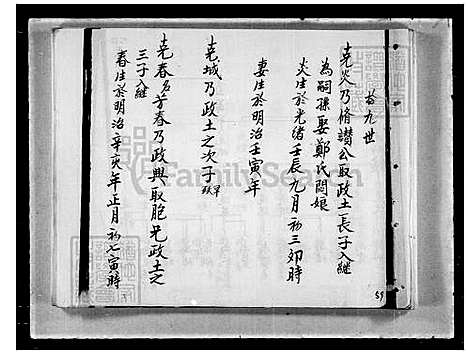 拾九世
堯炎乃脩讃公取政土長子入繼
為嗣孫娶鄭氏閏娘
炎生於光緒壬辰九月初三卯時
妻生於明治壬寅年
堯城乃政土之次子早殀
堯春名芳春乃政興取胞兄政土之
三子繼
春生於明治辛亥年正月初七寅時
59
FamilySearch